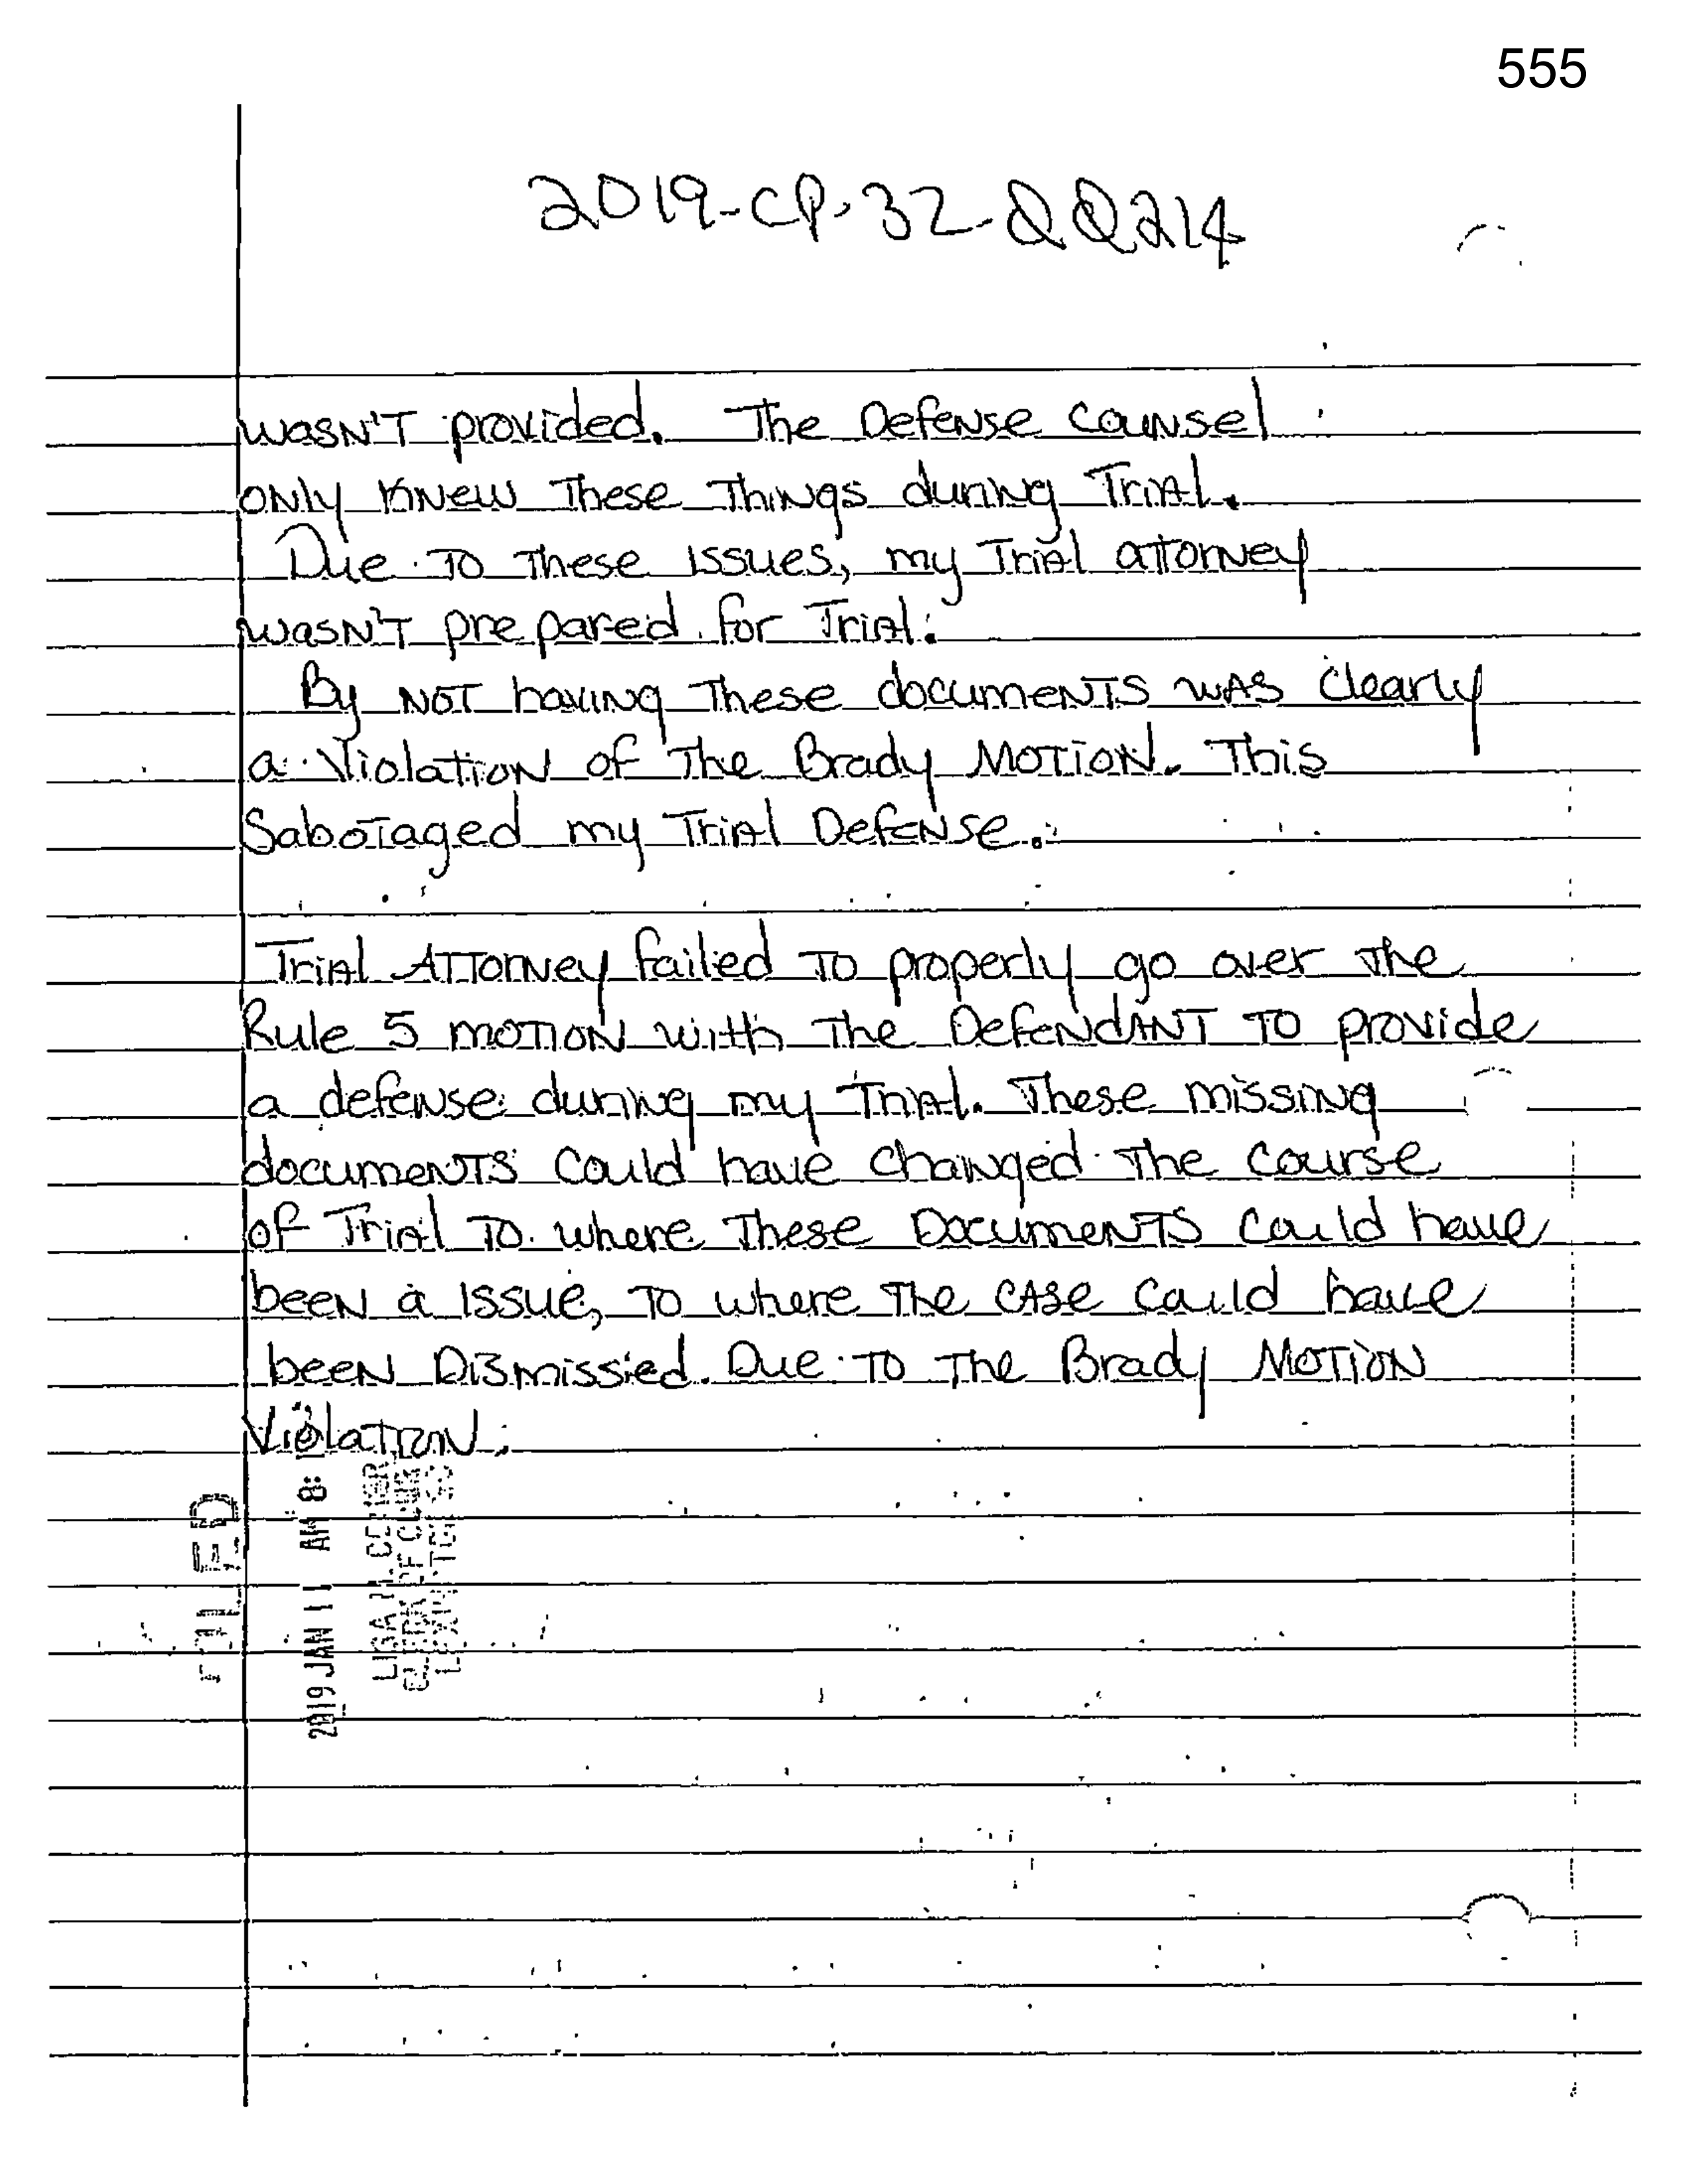 555
2019-CP-32-00214
wasn't provided. The Defense Counsel
only knew these things during Trial.
Due to these issues, my Trial attorney
wasn't prepared for Trial.
By not having these documents was clearly
a violation of the Brady Motion. This
Sabotaged my Trial Defense.
Trial Attorney failed to properly go over the
Rule 5 motion with the Defendant to provide
a defense during my Trial. These missing
documents could have changed the course
of Trial to where these Documents could have
been a issue, to where the case could have
been Dismissied. Due to the Brady Motion
Violation.
FILED
2019 JAN 11 AM 8:
LISA
CLERK OF